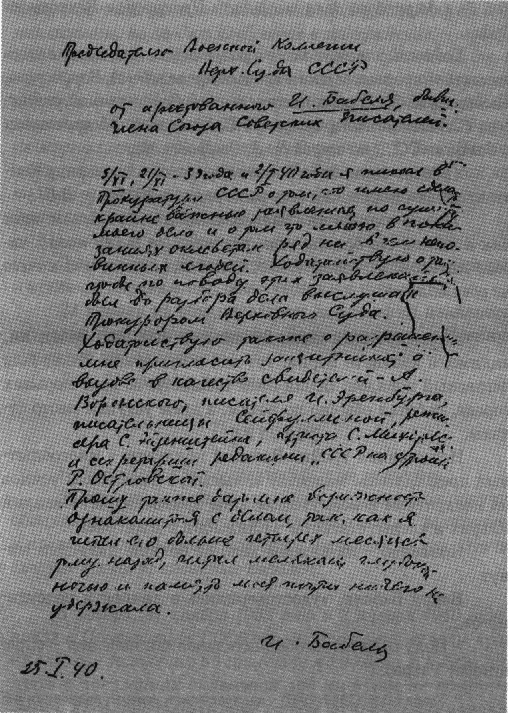 Председателю Военной Коллегии
Верх. Суда СССР
от арестованного И. Бабеля, бывш.
члена Союза Советских Писателей.
5/XI, 21/XI - 39 года и 2/I 40 года я писал в
Прокуратуру СССР о том, что имею сделать
крайне важные заявления по существу
моего дела и о том что мною в пока
заниях оклеветан ряд ни в чем непо
винных людей. Ходатайствую о том,
чтобы по поводу этих заявлений я
был до разбора дела выслушан
Прокурором Верховного Суда.
Ходатайствую также о разрешении
мне пригласить защитника; о
вызове в качестве свидетелей - А.
Воронского, писателя И. Эренбурга,
писательницы Сейфуллиной, режис
сера С. Эйзенштейна, артиста С. Михоэлса
и секретарши редакции "СССР на стройке"
Р. Островской.
Прошу также дать мне возможность
ознакомиться с делом, так как я
читал его больше четырех месяцев
тому назад, читал мельком, глубокой
ночью и память моя почти ничего не
удержала.
И. Бабель
25.I.40.